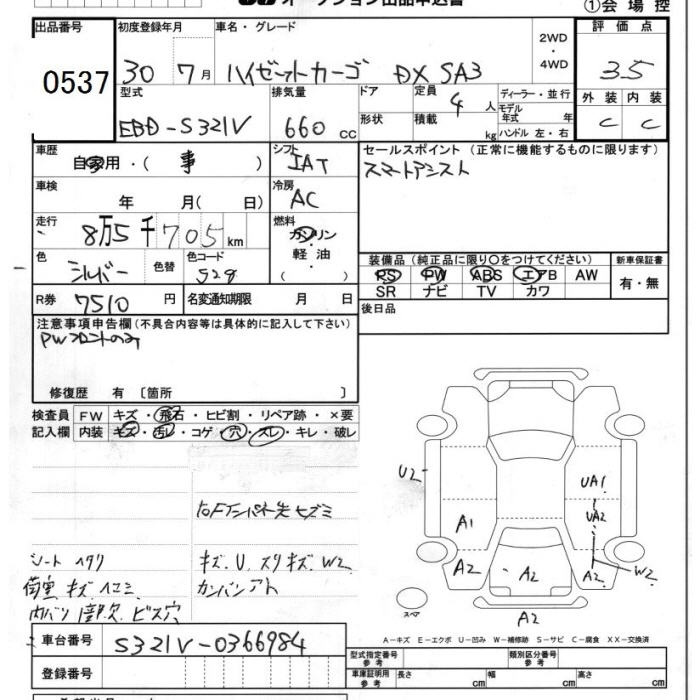 オークション出品申込書
①会場控
出品番号
0537
初度登録年月
30 7月
車名・グレード
ハイゼットカーゴ DX SA3
2WD
・
4WD
評価点
3.5
型式
EBD-S321V
排気量
660 cc
ドア
形状
定員
4人
積載 kg
ディーラー・並行
モデル年式 年式
ハンドル 左・右
外装 内装
C C
車歴
自家用・( 事 )
シフト
IAT
セールスポイント (正常に機能するものに限ります)
スマートアシスト
車検
年 月( 日)
冷房
AC
走行
8万5千705km
燃料
ガソリン
・
軽油
( )
色
シルバー
色替
色コード
S28
装備品 (純正品に限り〇をつけてください)
新車保証書
PS PW ABS エアB AW
SR ナビ TV カワ
有・無
R券 7510円
名変通知期限 月 日
後日品
注意事項申告欄(不具合内容等は具体的に記入して下さい)
PWフロントのみ
修復歴 有 〔箇所 〕
検査員記入欄
FW キズ・飛石・ヒビ割・リペア跡・×要
内装 キズ・汚レ・コゲ・穴・スレ・キレ・破レ
シート ヘタリ
荷室 キズ ヘコミ
内バリ 欠 ビス穴
キズ.U.スリキズ.W2
カンバンアト
U2
A1
A2
A2
A2
UA1
UA2
A2
W2
スペア
A2
A-キズ E-エクボ U-凹み W-補修跡 S-サビ C-腐食 XX-交換済
車台番号 S321V-0366984
登録番号
型式指定番号 参考
類別区分番号 参考
車庫証明用 参考
長さ cm
幅 cm
高さ cm